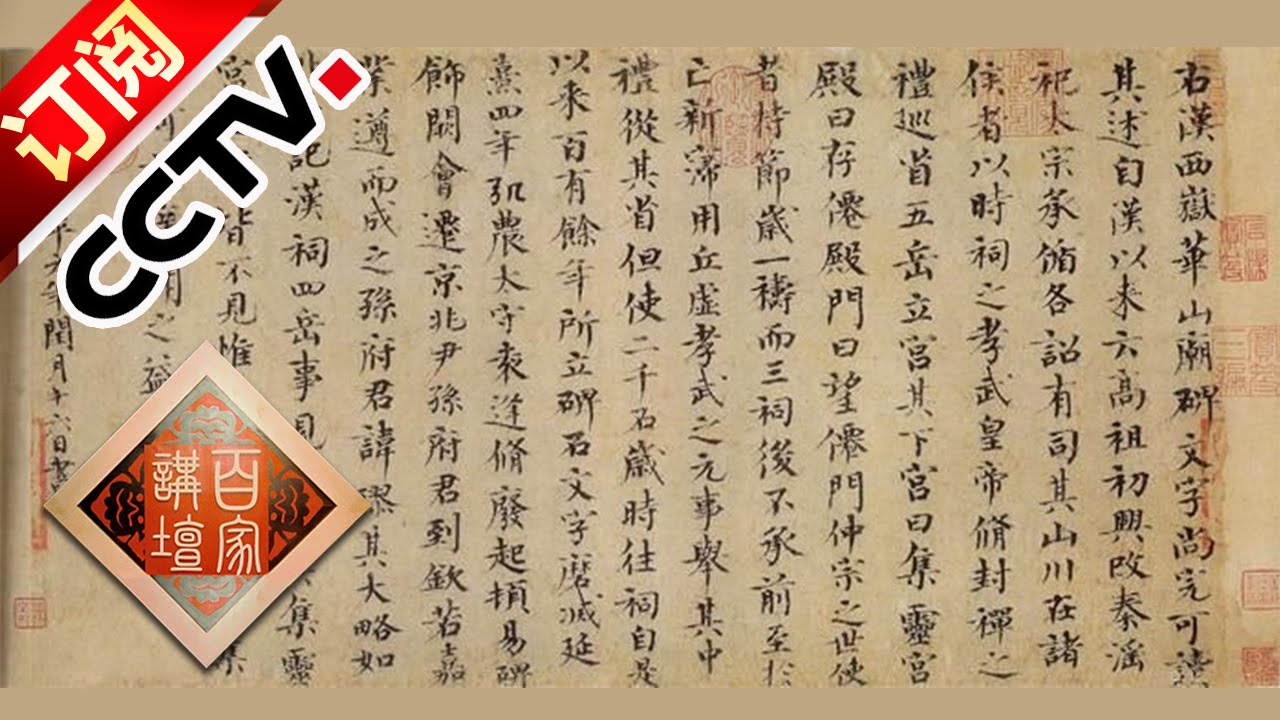 订阅
CCTV
百家
講壇
右漢西嶽華山廟碑文字尚完可讀
其述自漢以來云高祖初興改秦淫
祀太宗承循各詔有司其山川在諸
侯者以時祠之孝武皇帝脩封禪之
禮巡省五岳立宮其下宮曰集靈宮
殿曰存僊殿門曰望僊門仲宗之世使
者持節歲一禱而三祠後不承前至於
亡新寖用丘虛孝武之元事舉其中
禮從其省但使二千石歲時往祠自是
以來百有餘年所立碑石文字磨滅延
熹四年弘農太守袁逢脩廢起頓易碑
飾闕會遷京兆尹孫府君到欽若嘉
業遵而成之孫府君諱璆其大略如
記漢祠四岳事見集靈
宮皆不見惟
用之益集
年閏月十六日書